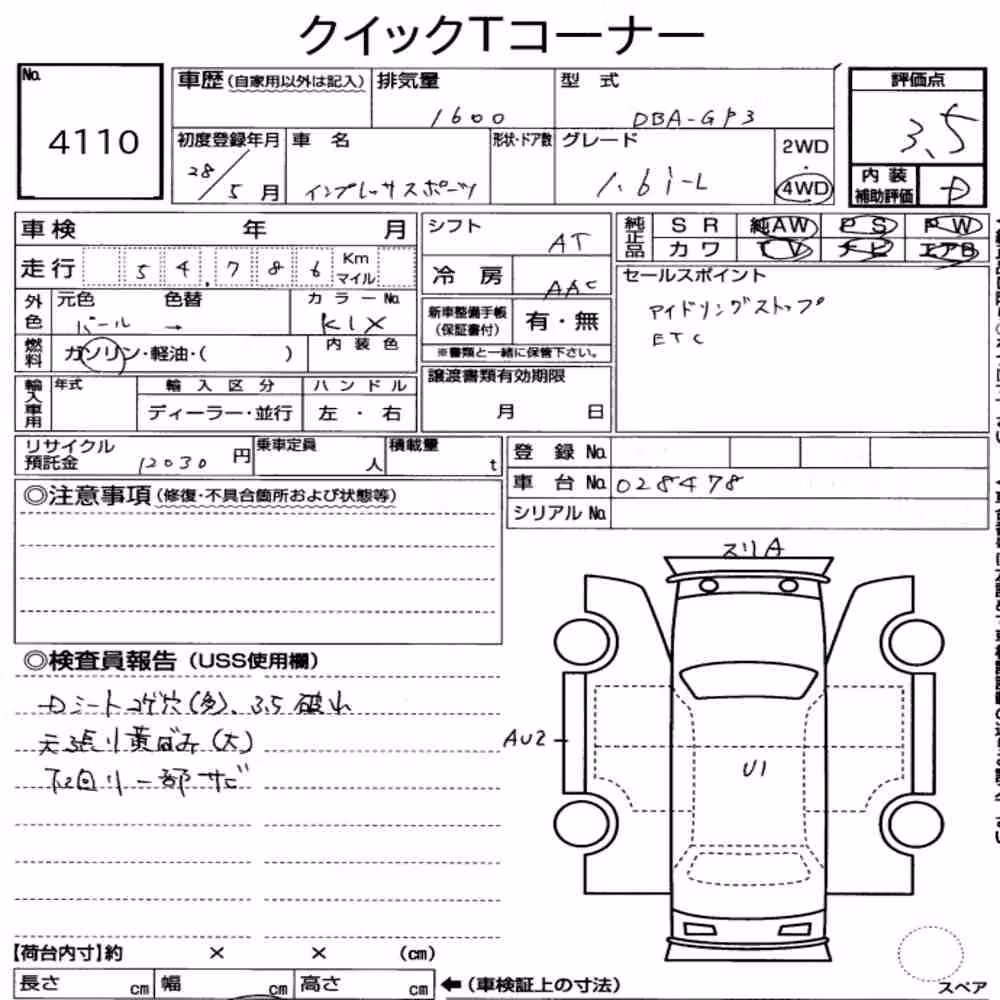 クイックTコーナー
No. 4110
車歴 (自家用以外は記入) 排気量 1600 型式 DBA-GP3
評価点 3.5
初度登録年月 28/5月 車名 インプレッサスポーツ 形状・ドア数 グレード 1.6i-L 2WD・4WD
内装補助評価 D
車検 年 月
シフト AT
純正品 SR 純AW PS PW
カワ TV ナビ エアB
走行 54,786 Km マイル
冷房 AAC
セールスポイント
アイドリングストップ
ETC
外色 元色 パール 色替 → カラーNo. K1X
新車整備手帳(保証書付) 有・無
※書類と一緒に保管下さい。
燃料 ガソリン・軽油・( ) 内装色
輸入車用 年式 輸入区分 ハンドル
ディーラー・並行 左・右
譲渡書類有効期限
月 日
リサイクル預託金 12030円 乗車定員 人 積載量 t
登録No.
車台No. 028478
シリアルNo.
◎注意事項 (修復・不具合箇所および状態等)
スリA
◎検査員報告 (USS使用欄)
Dシートコゲ穴(多)、3.5破れ
天張り黄ばみ(大)
下回り一部サビ
AU2
U1
【荷台内寸】約 × × (cm)
長さ cm 幅 cm 高さ cm ←(車検証上の寸法)
スペア